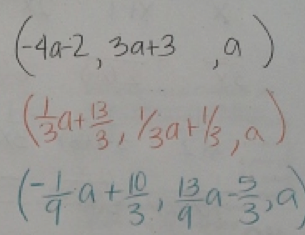 (-4a-2, 3a+3, a)
(1/3a+13/3, 1/3a+1/3, a)
(-1/9a+10/3, 13/9a-5/3, a)